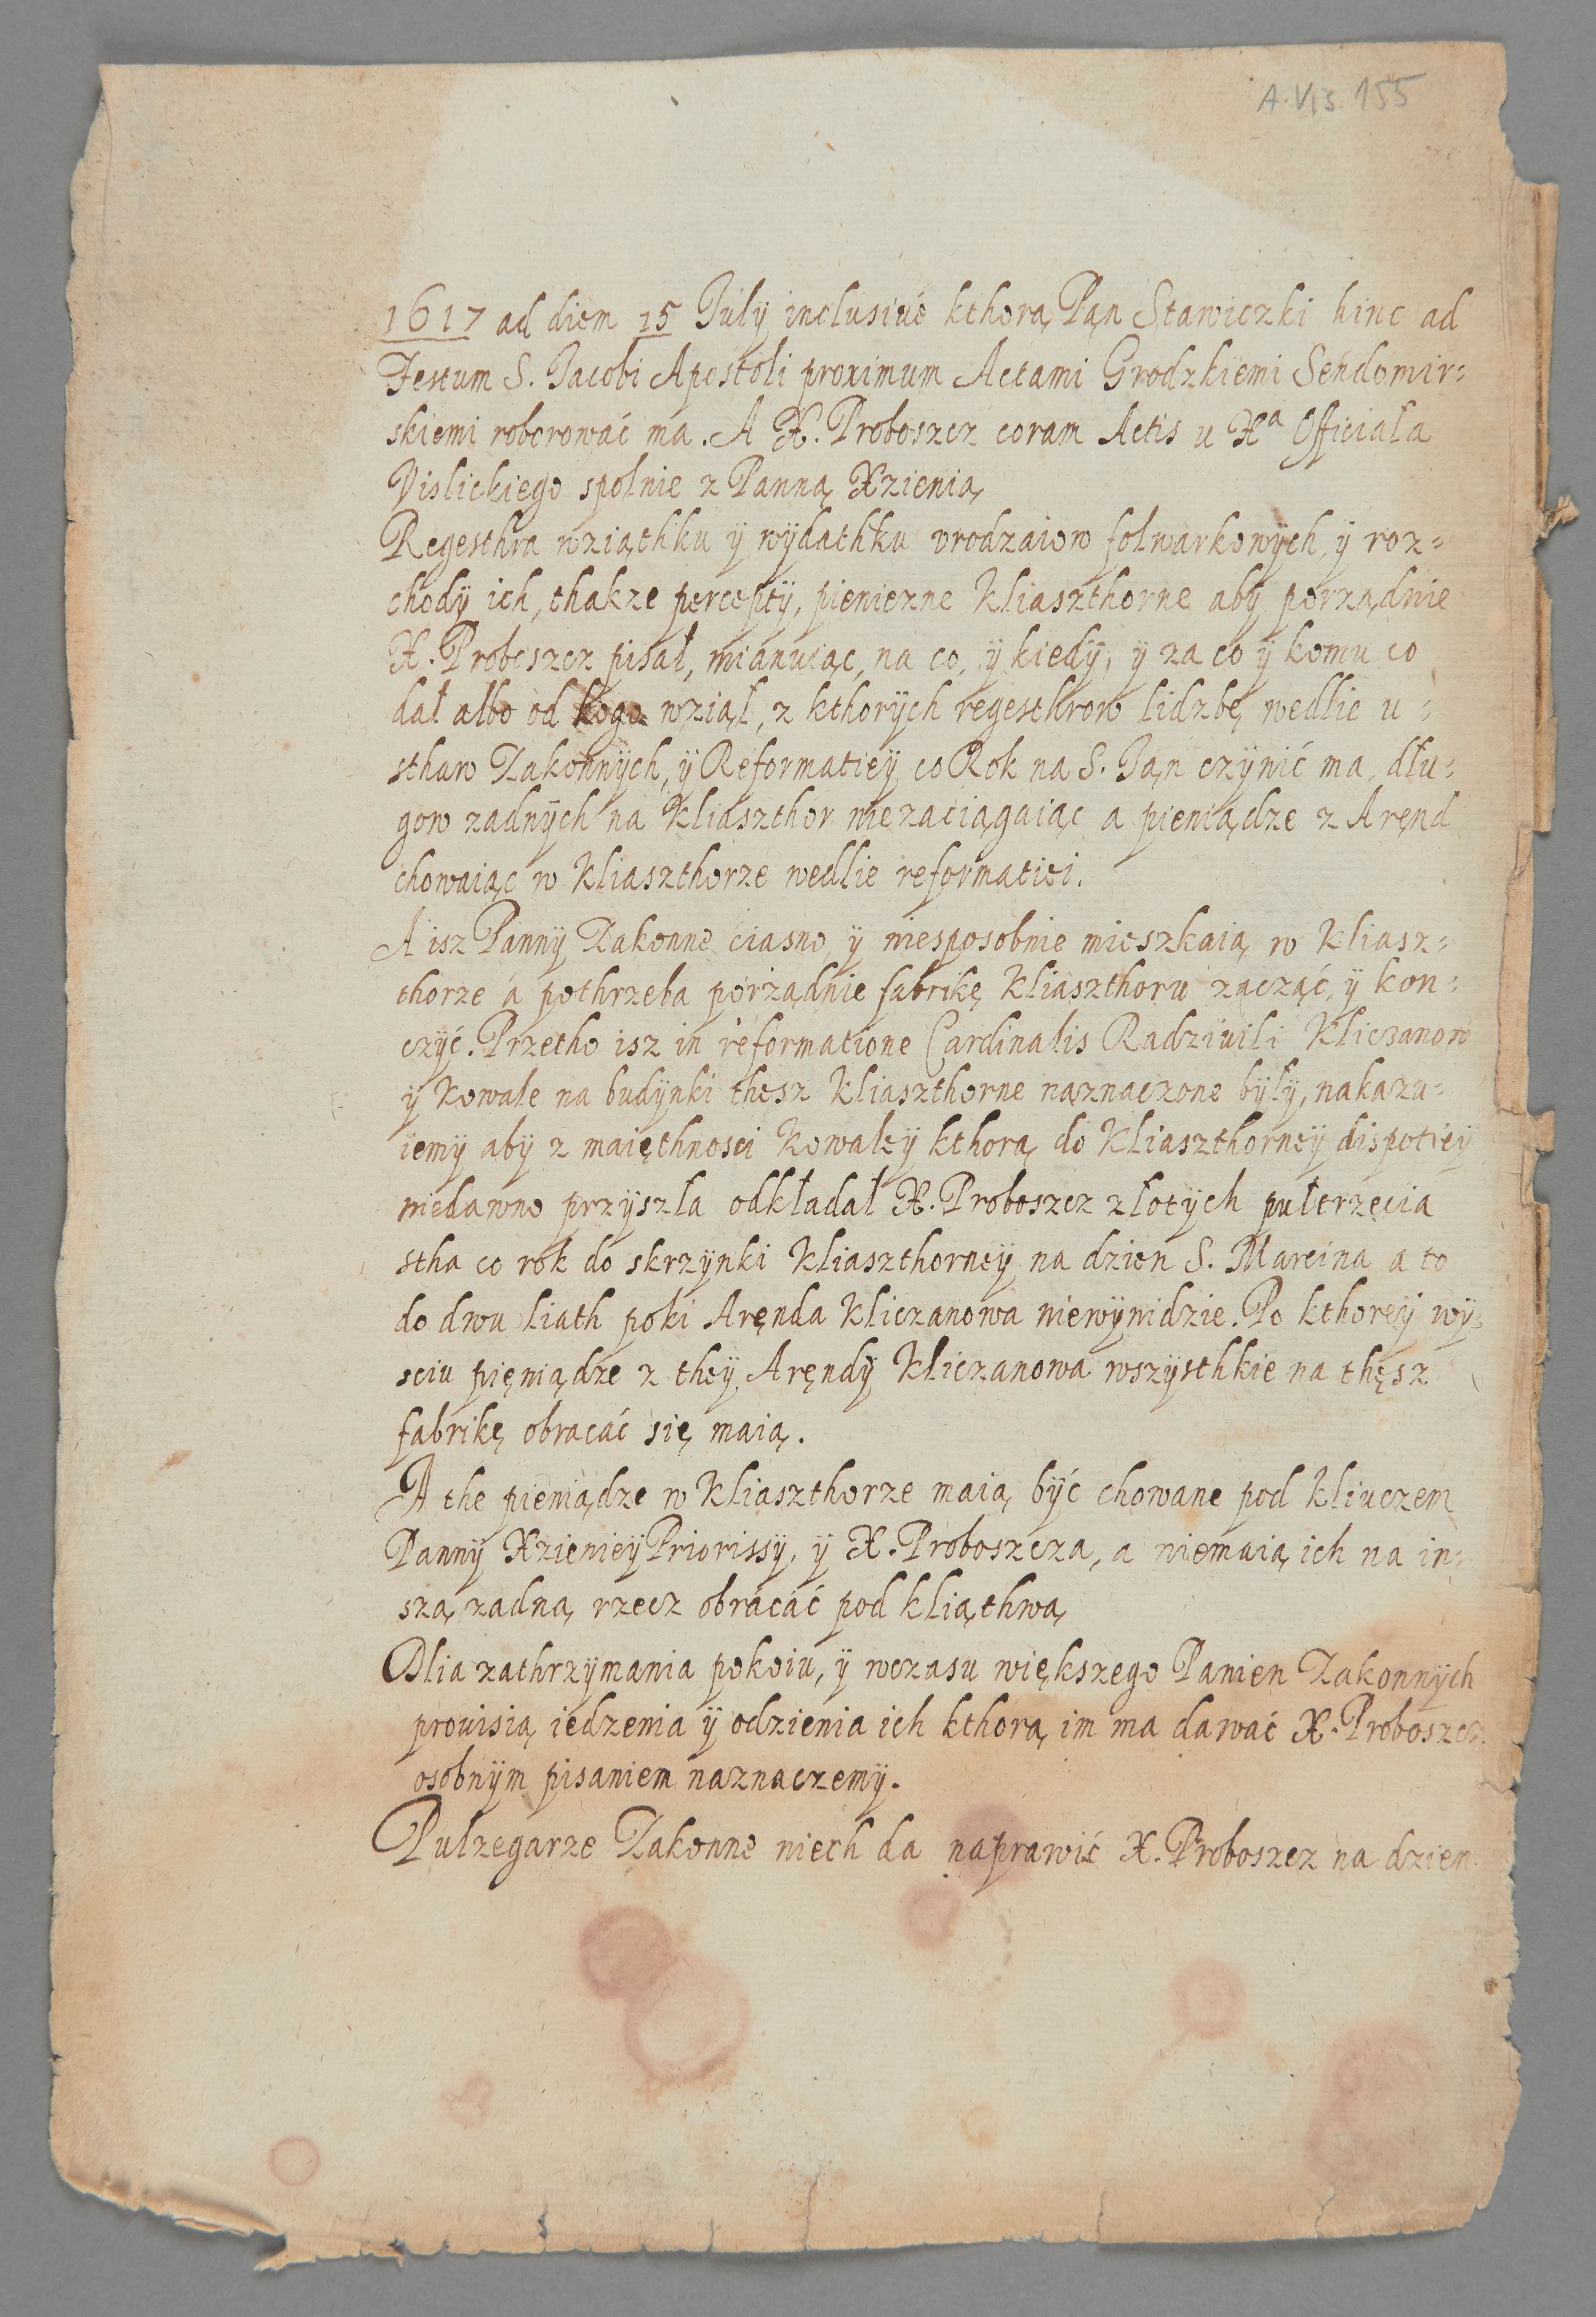 A. VI3. 155
1617 ad diem 15 July inclusiuè kthorą Pąn Stawiczki hinc ad
Festum S. Jacobi Apostoli proximum Actami Grodzkiemi Sendomir=
skiemi roborować ma. A X. Proboszcz coram Actis u Xᵃ Officiała
Vislickiego spolnie z Panną Xzienią
Regesthra wziąthku ÿ wÿdathku vrodzaiow folwarkowÿch, ÿ roz=
chodÿ ich, thakze perceptÿ, pieniezne Kliaszthorne abÿ porządnie
X. Proboszcz pisał, mianuiąc, na co, ÿ kiedÿ, ÿ za co ÿ komu co
dał albo od kogo wziął, z kthorÿch regesthrow lidzbę wedlie u=
sthaw Zakonnÿch, ÿ Reformatieÿ co Rok na S. Jąn czÿnić ma, dłu=
gow zadnÿch na Kliaszthor niezaciągaiąc a pieniądze z Aręnd
chowaiąc w Kliaszthorze wedlie reformatiei.
A isz Pannÿ Zakonne ciasno ÿ niesposobnie mieszkaią w Kliasz=
thorze á pothrzeba porządnie fabrikę Kliaszthoru zacząć, ÿ kon=
czÿć. Przetho isz in reformatione Cardinalis Radziuili Kliczanow
ÿ Kowale na budÿnki thesz Kliaszthorne naznaczone bÿłÿ, nakazu=
iemÿ abÿ z maięthnosci Kowaleÿ kthorą do Kliaszthorneÿ dispotieÿ
niedawno przÿszła odkładał X. Proboszcz złotÿch pułtrzecia
stha co rok do skrzÿnki Kliaszthorneÿ na dzien S. Marcina a to
do dwu liath poki Aręnda Kliczanowa niewÿnidzie. Po kthoreÿ wÿ=
sciu pięniądze z theÿ Aręndÿ Kliczanowa wszÿsthkie na thęsz
fabrikę obracać się maią.
A the pieniądze w Kliaszthorze maią bÿć chowane pod kliuczem
Pannÿ Xzienieÿ Priorissÿ, ÿ X. Proboszcza, a niemaią ich na in=
szą zadną rzecz obracać pod kliąthwą
Dlia zathrzÿmania pokoiu, ÿ wczasu większego Panien Zakonnÿch
prouisią iedzenia ÿ odzienia ich kthorą im ma dawać X. Proboszcz
osobnÿm pisaniem naznaczemÿ.
Pulzegarze Zakonne niech da naprawić X. Proboszcz na dzien